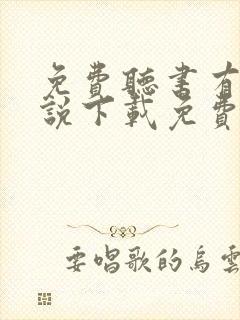 免費聽書有
說下載免費
要唱歌的烏雲